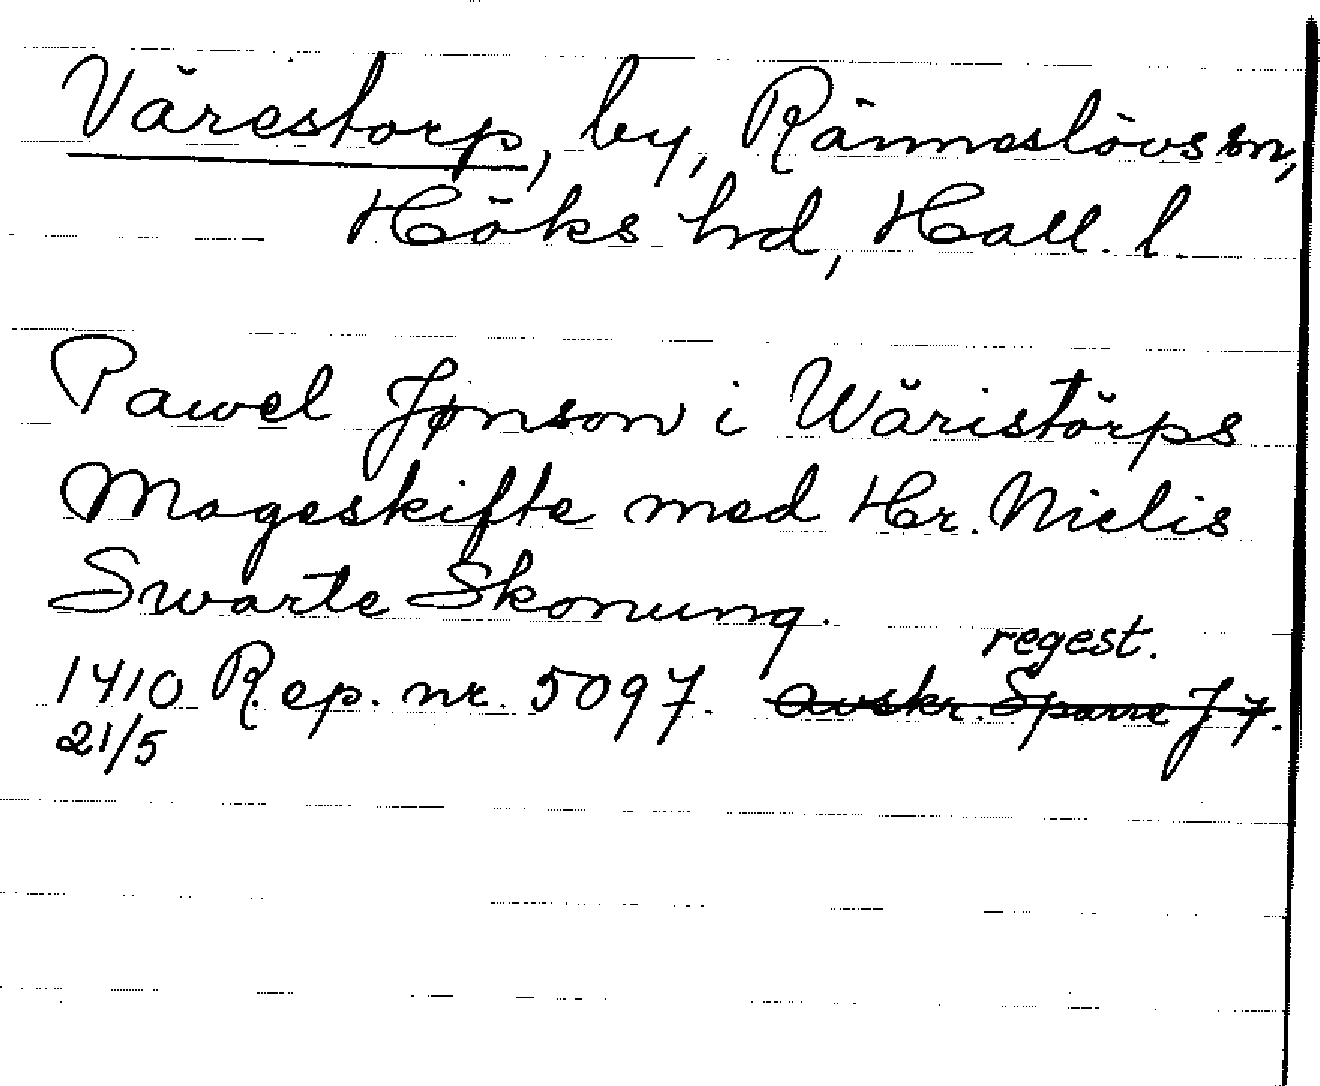 Värestorp, by, Ränneslövs sn,
Höks hrd, Hall. l.
Pawel Jønson i Wäristörps
Mageskifte med Hr. Nielis
Swarte Skonung.
regest.
1410 Rep. nr. 5097. avskr. Sparre J 7.
21/5